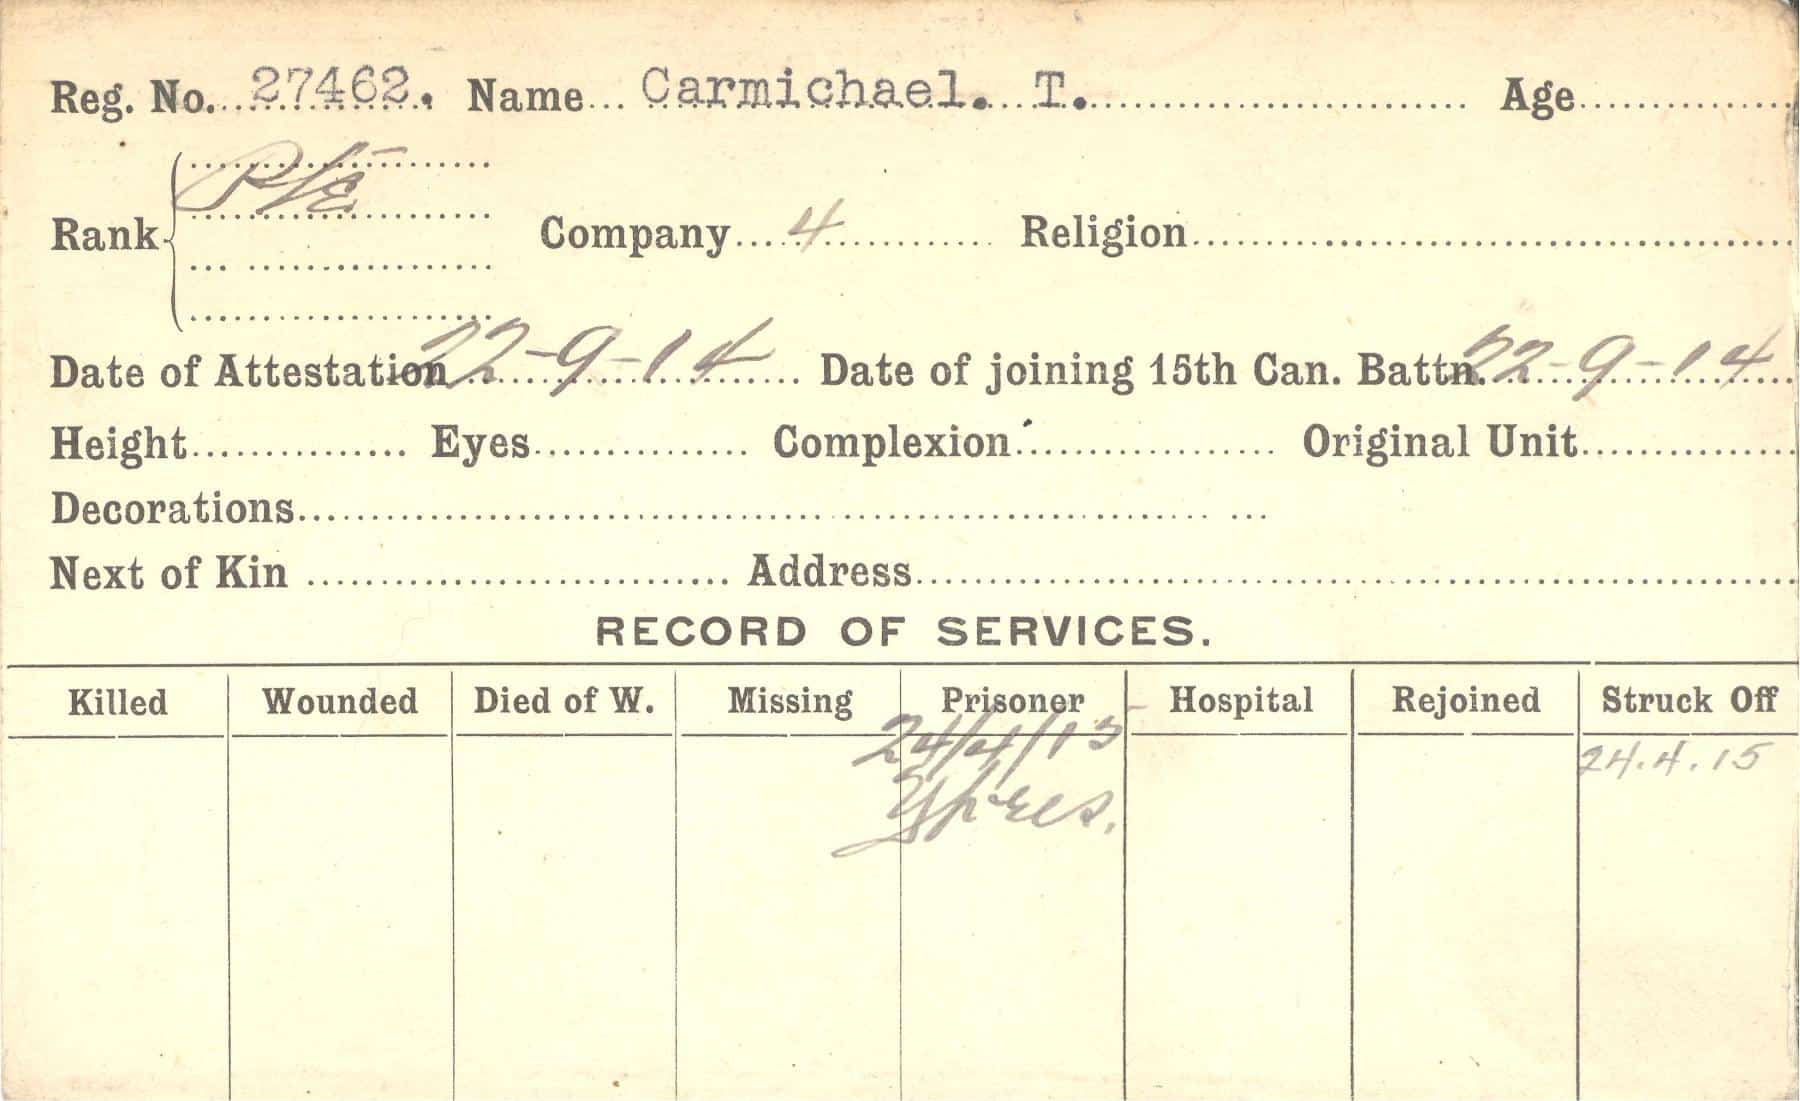 Reg. No. 27462. Name Carmichael. T. Age
Pte
Rank Company 4 Religion
Date of Attestation 22-9-14 Date of joining 15th Can. Battn. 22-9-14
Height Eyes Complexion Original Unit
Decorations
Next of Kin Address
RECORD OF SERVICES.
Killed Wounded Died of W. Missing Prisoner Hospital Rejoined Struck Off
24/4/15 24.4.15
Ypres.